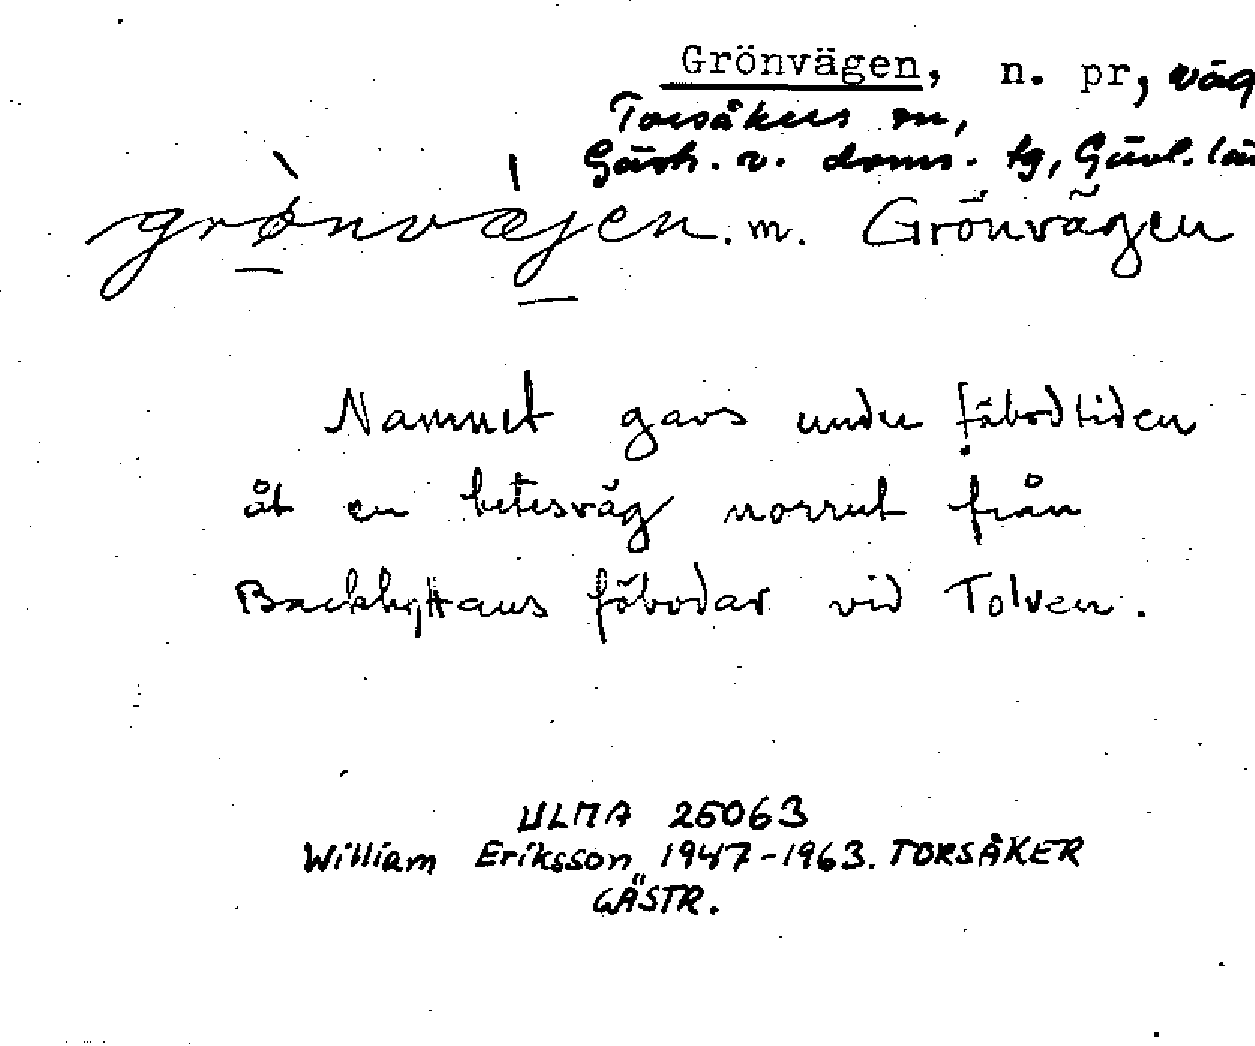 Grönvägen, n. pr, väg
Torsåkers sn,
Gästr. v. doms. tg, Gävl. län
grønvæjen. m. Grönvägen
Namnet gavs under fäbodtiden
åt en betesväg norrut från
Backhyttans fäbodar vid Tolven.
ULMA 25063
William Eriksson 1947-1963. TORSÅKER
GÄSTR.